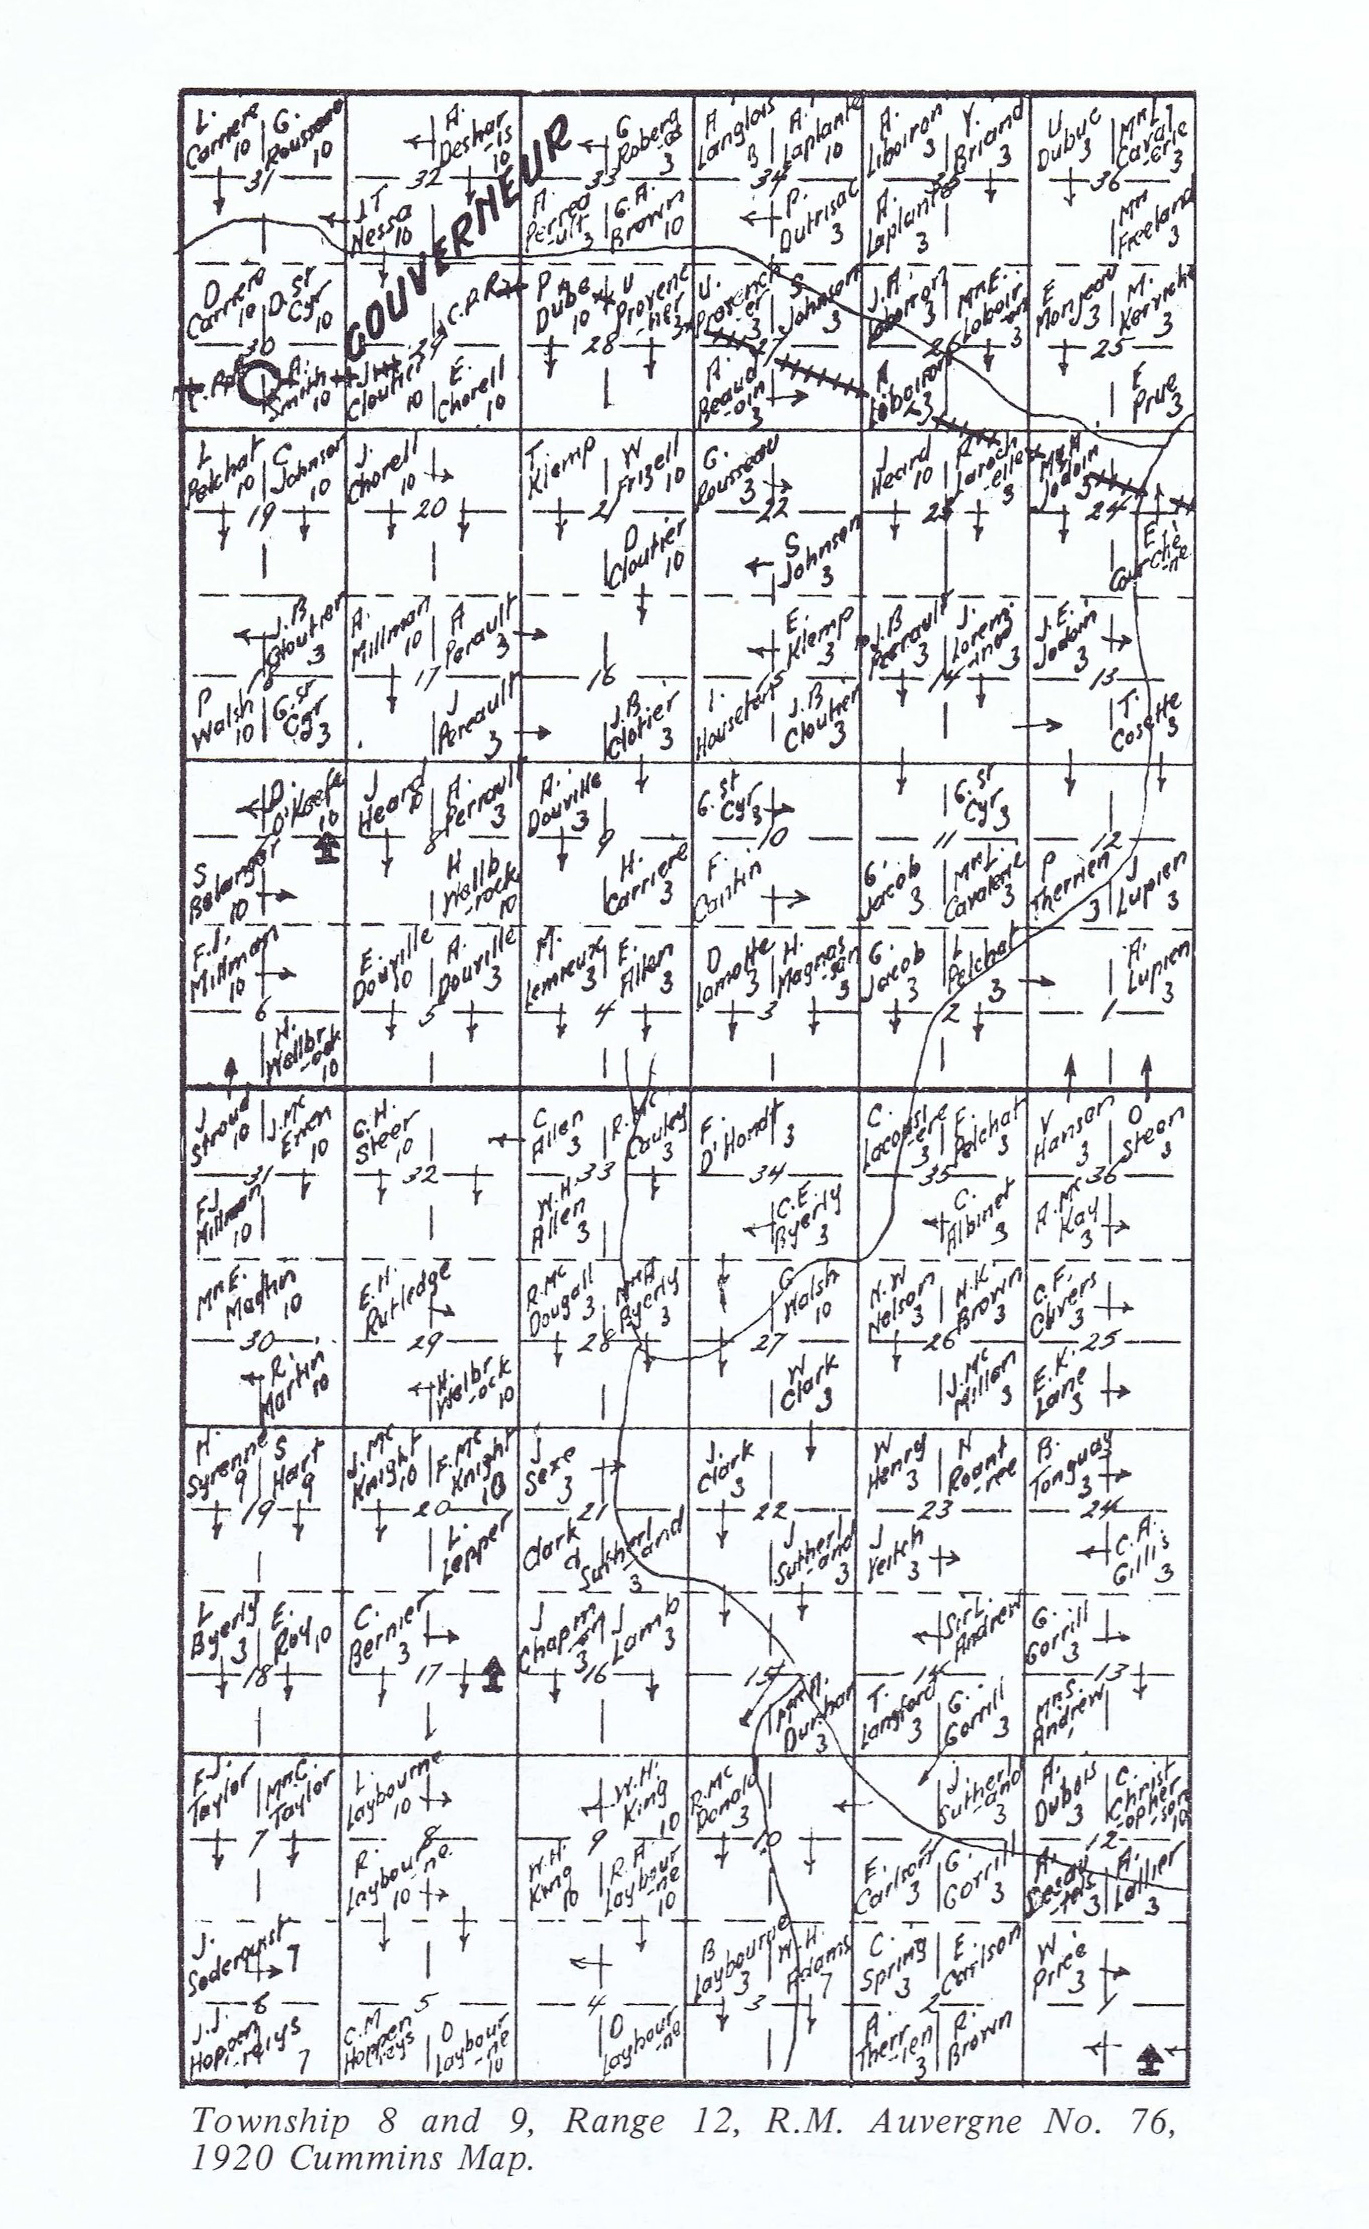 L.
Carriere
10
G.
Rousseau
10
31
A.
Deshar
-is
10
32
J T
Nessa
10
GOUVERNEUR
G
Roberg
3
33
A.
Perrea
-ult
3
G.A.
Brown
10
A
Langlois
3
A.
Laplante
10
34
P.
Dutrisac
3
A.
Liboiron
3
Y.
Briand
3
A.
Laplante
3
U
Dubuc
3
Mrs L
Caval
-erie
3
36
Mn
Freeland
3
D
Carriere
10
D. St
Cyr
10
30
C.P.R.
A.
Smith
10
29
J
Cloutier
10
E.
Chorell
10
C.P.R.
P
Dube
10
U
Provenc
-her
3
28
U.
Provench
-er
3
S
Johnson
3
27
A.
Beaud
-oin
3
J.A.
Loboiron
3
Mrs E.
Loboir
-on
3
26
A
Loboiron
3
E
Monjeau
3
M.
3
25
E
Prue
3
L
Pelchat
10
C
Johnson
10
19
J.
Chorell
10
20
T.
Klemp
W
Frizell
10
21
D
Cloutier
10
G.
Rousseau
3
22
S
Johnson
3
J
Heard
10
R
Laroch
-elle
3
23
Jodoin
3
24
E.
Courche
-ne
J.B
Cloutier
3
18
P
Walsh
10
G. St
Cyr
3
A.
Millman
10
A
Perault
3
17
J
Pereault
3
16
J.B.
Clotier
3
E.
Klemp
3
15
J.B
Cloutier
3
J.B
Perrault
3
J.
Lorenz
3
14
J.E.
Jodoin
3
13
T.
Cosette
3
D.
O'Keefe
10
S
Belanger
10
J
Heard
10
A.
Perrault
3
8
H
Wellb
-rock
10
A.
Douville
3
9
H.
Carriere
3
G. St
Cyr
3
10
F.
Cantin
G. St
Cyr
3
11
G.
Jacob
3
Mrs L.
Cavalerie
3
12
P
Therrien
3
J
Lupien
3
F.J.
Millman
10
6
H.
Wellbr
-ock
10
E.
Douville
10
A.
Douville
3
5
M.
Lemreux
3
E.
Allen
3
4
D
Lamotte
3
H.
Magnas
-san
3
3
G.
Jacob
3
L
Pelchat
3
2
A.
Lupien
3
1
J
Stroud
10
J. Mc
Erren
10
31
F.J.
Millman
10
G.H.
Steer
10
32
C
Allen
3
R. Mc
Cauley
3
33
W.H.
Allen
3
F.
D'Hondt
3
34
C.E.
Byerly
3
C.
Lacoursi
-ere
3
E.
Pelchat
3
35
C.
Albinet
3
V
Hanson
3
O
Steen
3
36
A. Mc
Kay
3
Mrs E.
Martin
10
30
R.
Martin
10
E.H.
Rutledge
29
H.
Wellbr
-ock
10
R. Mc
Dougall
3
Mrs A
Byerly
3
28
G
Walsh
10
27
W
Clark
3
N.W
Nelson
3
H.K.
Brown
3
26
J. Mc
Millan
3
C.F.
Cyvers
3
25
E.K.
Lane
3
H.
Syrenne
9
S
Hart
9
19
J. Mc
Knight
10
F. Mc
Knight
10
20
L.
Lepper
J
Sexe
3
21
Clark
&
Sutherl
-and
3
J.
Clark
3
22
J
Sutherl
-and
3
W
Henry
3
N
Rount
-ree
23
J
Veitch
3
B.
Tonguay
3
24
C.A.
Gillis
3
L
Byerly
3
E.
Roy
10
18
C.
Bernier
3
17
J
Chapm
-an
3
J
Lamb
3
16
15
Dunham
3
Sir L.
Andrew
14
T.
Langford
3
G.
Gorrill
3
G.
Gorrill
3
13
Mrs S.
Andrew
F.J.
Taylor
Mrs C.
Taylor
7
L.
Laybourne
10
8
R.
Laybour
-ne
10
W.H.
King
10
9
W.H.
King
10
R.A.
Laybour
-ne
10
R. Mc
Donald
3
10
J.
Sutherl
-and
3
11
E.
Carlson
3
G.
Gorrill
3
A.
Dubois
3
C.
Christ
-opher
-son
10
12
A.
3
A.
Lallier
3
J.
Soderquist
7
6
J.J.
Hoppen
-reiys
7
5
C.M
Hoppen
-reys
O
Laybour
-ne
10
4
O
Laybour
-ne
B
Laybourne
3
W.H.
Adams
7
3
C.
Spring
3
E.
Carlson
2
A.
Therr
-ien
3
R.
Brown
W
Price
3
1
Township 8 and 9, Range 12, R.M. Auvergne No. 76,
1920 Cummins Map.